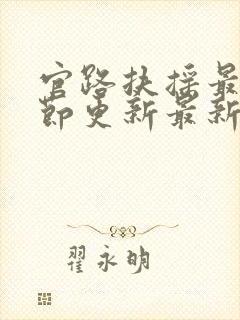 官路扶摇最
节更新最新
翟永明